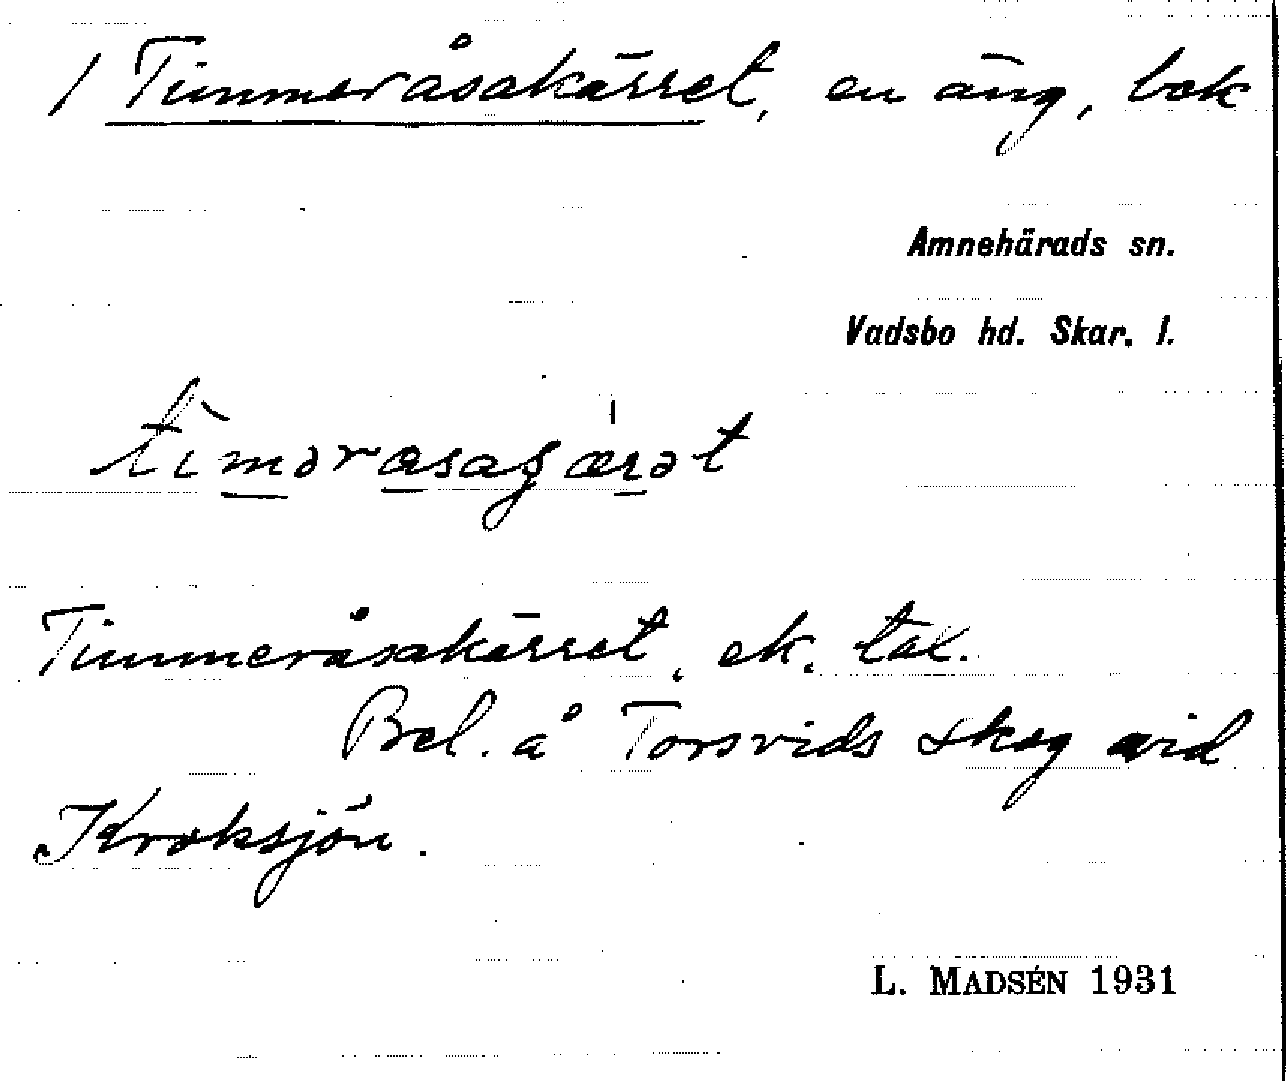 1 Timmeråsakärret, en äng, bek
Amnehärads sn.
Vadsbo hd. Skar. l.
Timmeråsakärret, ek. tal.
Bel. å Torsvids skog vid
Kroksjön.
L. MADSÉN 1931